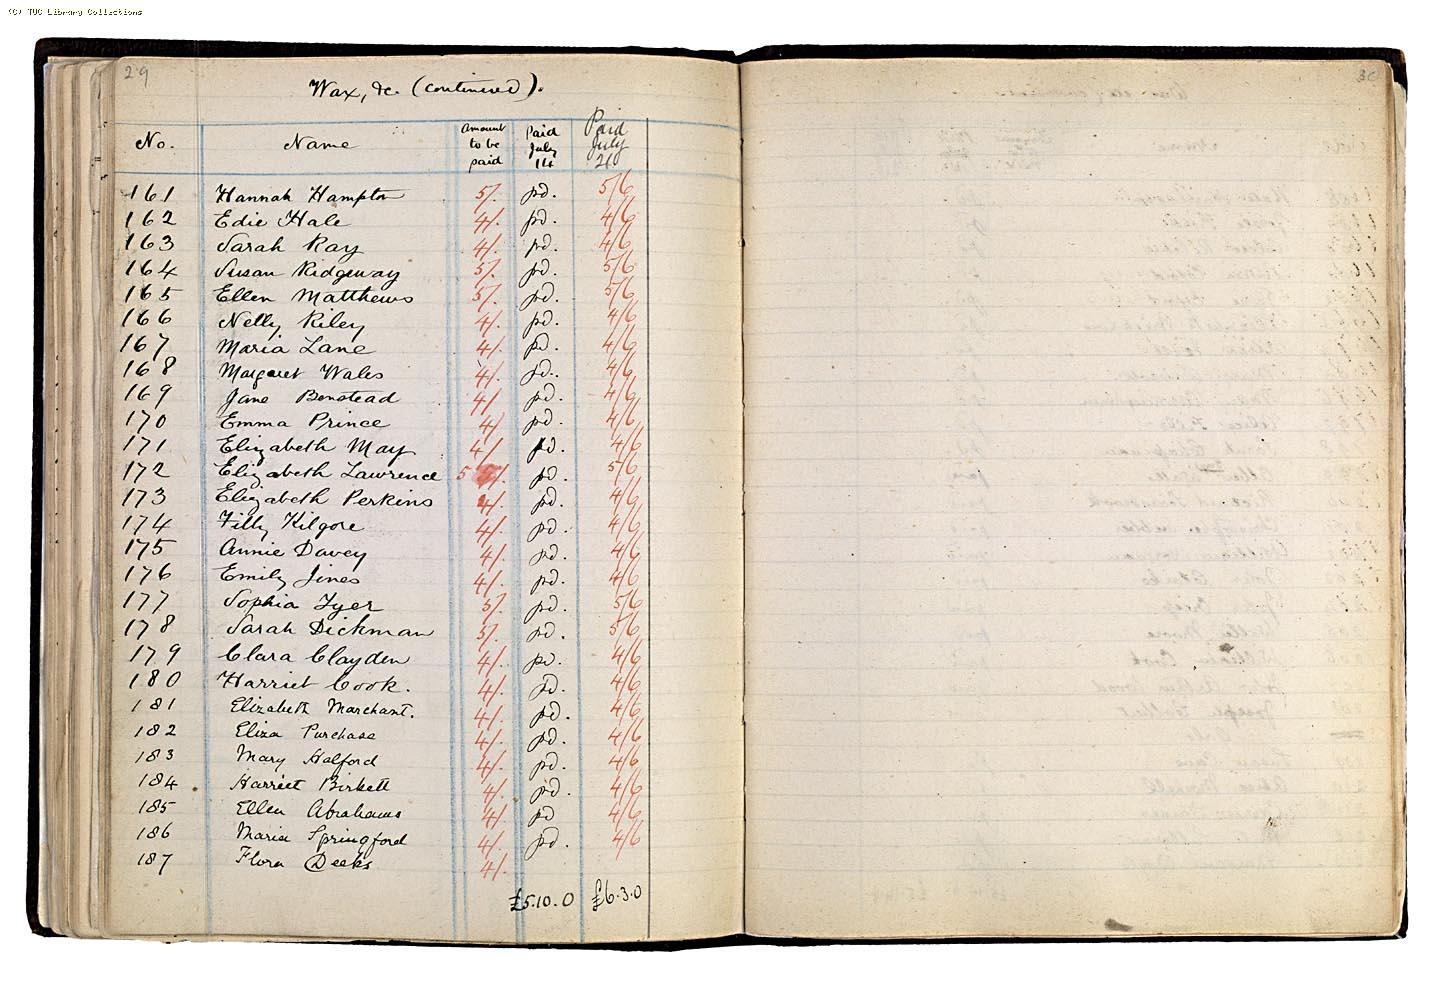 (C) TUC Library Collections
29
30
Wax, &c. (continued).
No. Name Amount to be paid Paid July 14 Paid July 21
161 Hannah Hampton 5/. pd. 5/6
162 Edie Hale 4/. pd. 4/6
163 Sarah Ray 4/. pd. 4/6
164 Susan Ridgeway 5/. pd. 5/6
165 Ellen Matthews 5/. pd. 5/6
166 Nelly Riley 4/. pd. 4/6
167 Maria Lane 4/. pd. 4/6
168 Margaret Wales 4/. pd. 4/6
169 Jane Benstead 4/ pd. 4/6
170 Emma Prince 4/ pd. 4/6
171 Elizabeth May 4/ pd. 4/6
172 Elizabeth Lawrence 5 pd. 5/6
173 Elizabeth Perkins 4/. pd. 4/6
174 Tilly Kilgore 4/. pd. 4/6
175 Annie Davey 4/. pd. 4/6
176 Emily Jines 4/. pd. 4/6
177 Sophia Tyer 5/. pd. 5/6
178 Sarah Dickman 5/. pd. 5/6
179 Clara Clayden 4/. pd. 4/6
180 Harriet Cook. 4/. pd. 4/6
181 Elizabeth Marchant. 4/. pd. 4/6
182 Eliza Purchase 4/. pd. 4/6
183 Mary Halford 4/. pd. 4/6
184 Harriet Birkett 4/. pd. 4/6
185 Ellen Abrahams 4/. pd 4/6
186 Maria Springford 4/. pd. 4/6
187 Flora Deeks 4/.
£5.10.0 £6.3.0